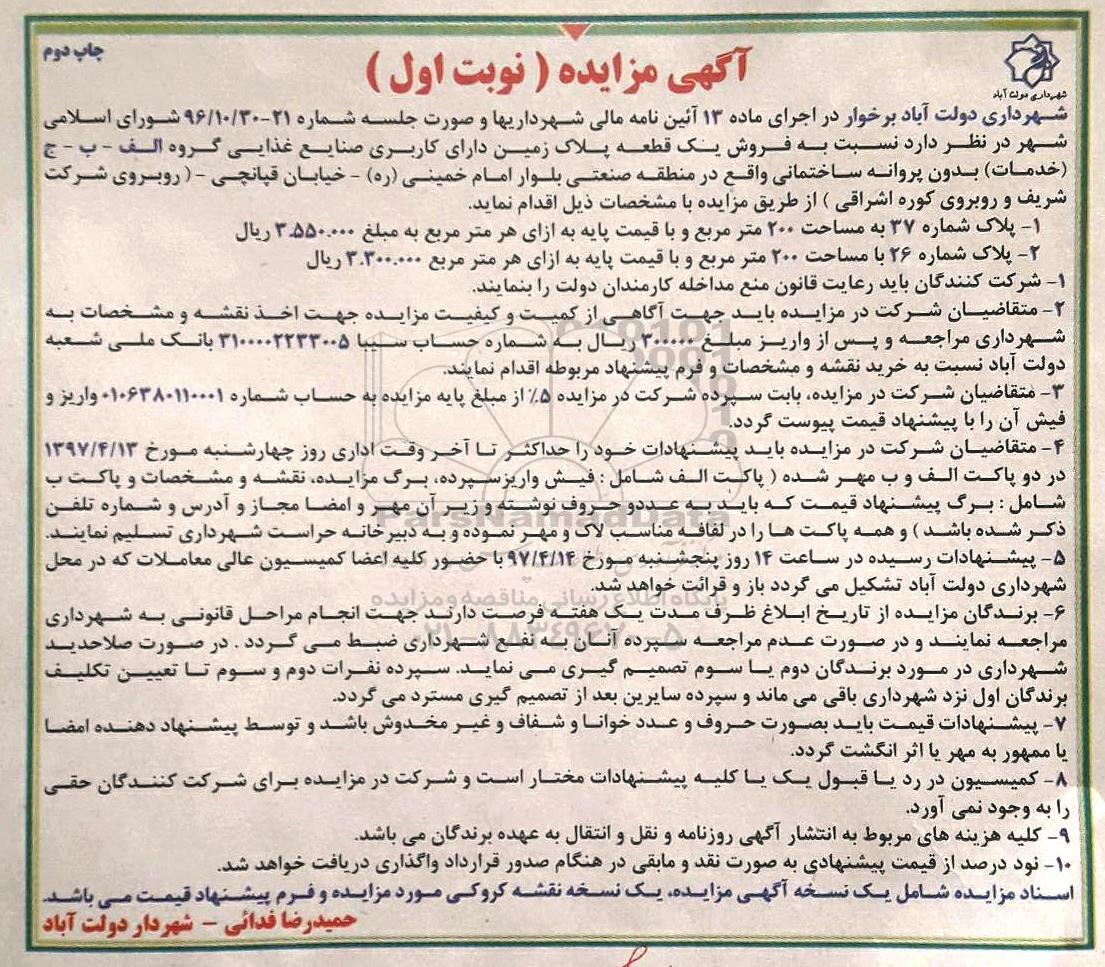 چاپ دوم
شهرداری دولت آباد
آگهی مزایده ( نوبت اول )
شهرداری دولت آباد برخوار در اجرای ماده ۱۳ آئین نامه مالی شهرداریها و صورت جلسه شماره ۲۱-۹۶/۱۰/۳۰ شورای اسلامی
شهر در نظر دارد نسبت به فروش یک قطعه پلاک زمین دارای کاربری صنایع غذایی گروه الف - ب - ج
(خدمات) بدون پروانه ساختمانی واقع در منطقه صنعتی بلوار امام خمینی (ره) - خیابان قپانچی - ( روبروی شرکت
شریف و روبروی کوره اشراقی ) از طریق مزایده با مشخصات ذیل اقدام نماید.
۱- پلاک شماره ۳۷ به مساحت ۲۰۰ متر مربع و با قیمت پایه به ازای هر متر مربع به مبلغ ۳.۵۵۰.۰۰۰ ریال
۲- پلاک شماره ۲۶ با مساحت ۲۰۰ متر مربع و با قیمت پایه به ازای هر متر مربع ۳.۳۰۰.۰۰۰ ریال
۱- شرکت کنندگان باید رعایت قانون منع مداخله کارمندان دولت را بنمایند.
۲- متقاضیان شرکت در مزایده باید جهت آگاهی از کمیت و کیفیت مزایده جهت اخذ نقشه و مشخصات به
شهرداری مراجعه و پس از واریز مبلغ ۳۰۰۰۰۰ ریال به شماره حساب سیبا ۳۱۰۰۰۰۲۲۳۳۰۰۵ بانک ملی شعبه
دولت آباد نسبت به خرید نقشه و مشخصات و فرم پیشنهاد مربوطه اقدام نمایند.
۳- متقاضیان شرکت در مزایده، بابت سپرده شرکت در مزایده ۵٪ از مبلغ پایه مزایده به حساب شماره ۰۱۰۶۳۸۰۱۱۰۰۰۱ واریز و
فیش آن را با پیشنهاد قیمت پیوست گردد.
۴- متقاضیان شرکت در مزایده باید پیشنهادات خود را حداکثر تا آخر وقت اداری روز چهارشنبه مورخ ۱۳۹۷/۴/۱۳
در دو پاکت الف و ب مهر شده ( پاکت الف شامل : فیش واریز سپرده، برگ مزایده، نقشه و مشخصات و پاکت ب
شامل : برگ پیشنهاد قیمت که باید به عددو حروف نوشته و زیر آن مهر و امضا مجاز و آدرس و شماره تلفن
ذکر شده باشد ) و همه پاکت ها را در لفافه مناسب لاک و مهر نموده و به دبیرخانه حراست شهرداری تسلیم نمایند.
۵- پیشنهادات رسیده در ساعت ۱۴ روز پنجشنبه مورخ ۹۷/۴/۱۴ با حضور کلیه اعضا کمیسیون عالی معاملات که در محل
شهرداری دولت آباد تشکیل می گردد باز و قرائت خواهد شد.
۶- برندگان مزایده از تاریخ ابلاغ ظرف مدت یک هفته فرصت دارند جهت انجام مراحل قانونی به شهرداری
مراجعه نمایند و در صورت عدم مراجعه سپرده آنان به نفع شهرداری ضبط می گردد . در صورت صلاحدید
شهرداری در مورد برندگان دوم یا سوم تصمیم گیری می نماید. سپرده نفرات دوم و سوم تا تعیین تکلیف
برندگان اول نزد شهرداری باقی می ماند و سپرده سایرین بعد از تصمیم گیری مسترد می گردد.
۷- پیشنهادات قیمت باید بصورت حروف و عدد خوانا و شفاف و غیر مخدوش باشد و توسط پیشنهاد دهنده امضا
یا ممهور به مهر یا اثر انگشت گردد.
۸- کمیسیون در رد یا قبول یک یا کلیه پیشنهادات مختار است و شرکت در مزایده برای شرکت کنندگان حقی
را به وجود نمی آورد.
۹- کلیه هزینه های مربوط به انتشار آگهی روزنامه و نقل و انتقال به عهده برندگان می باشد.
۱۰- نود درصد از قیمت پیشنهادی به صورت نقد و مابقی در هنگام صدور قرارداد واگذاری دریافت خواهد شد.
اسناد مزایده شامل یک نسخه آگهی مزایده، یک نسخه نقشه کروکی مورد مزایده و فرم پیشنهاد قیمت می باشد.
حمیدرضا فدائی - شهردار دولت آباد
ParsNamadData
پایگاه اطلاع رسانی مناقصه و مزایده
۰۲۱-۸۸۳۴۹۶۷۰-۵